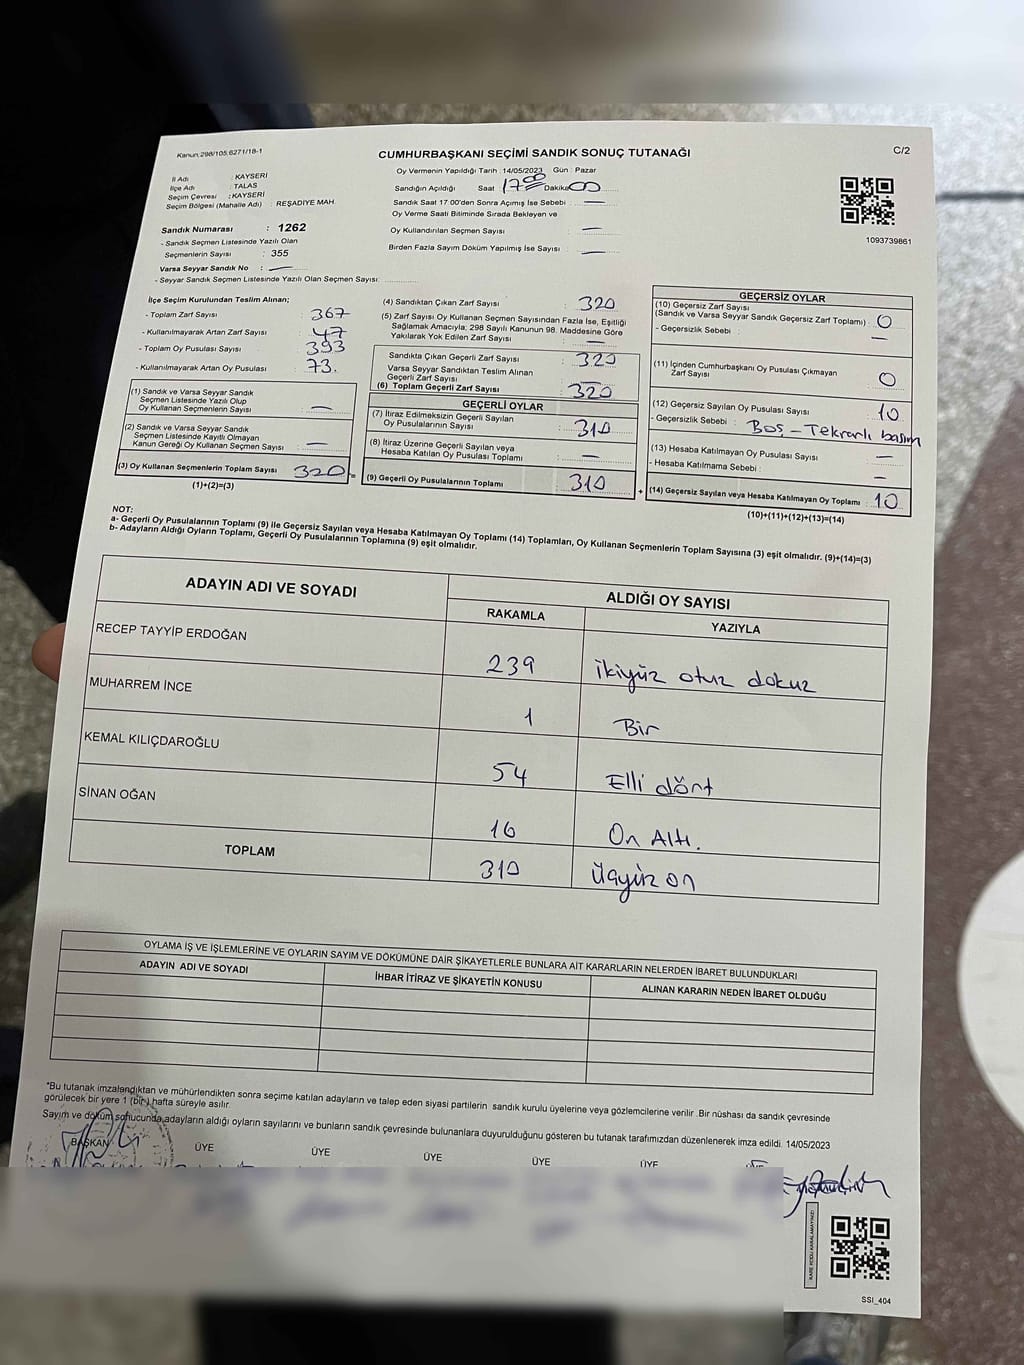 Kanun:298/105;6271/18-1
CUMHURBAŞKANI SEÇİMİ SANDIK SONUÇ TUTANAĞI
C/2
İl Adı : KAYSERİ
İlçe Adı : TALAS
Seçim Çevresi : KAYSERİ
Seçim Bölgesi (Mahalle Adı) : REŞADİYE MAH.
Sandık Numarası : 1262
- Sandık Seçmen Listesinde Yazılı Olan
Seçmenlerin Sayısı : 355
Varsa Seyyar Sandık No : —
- Seyyar Sandık Seçmen Listesinde Yazılı Olan Seçmen Sayısı:
Oy Vermenin Yapıldığı Tarih : 14/05/2023 Gün : Pazar
Sandığın Açıldığı Saat 17:00 Dakika 00
Sandık Saat 17:00'den Sonra Açımış İse Sebebi : —
Oy Verme Saati Bitiminde Sırada Bekleyen ve
Oy Kullandırılan Seçmen Sayısı : —
Birden Fazla Sayım Döküm Yapılmış İse Sayısı : —
1093739861
İlçe Seçim Kurulundan Teslim Alınan;
- Toplam Zarf Sayısı : 367
- Kullanılmayarak Artan Zarf Sayısı : 47
- Toplam Oy Pusulası Sayısı : 393
- Kullanılmayarak Artan Oy Pusulası : 73.
(1) Sandık ve Varsa Seyyar Sandık
Seçmen Listesinde Yazılı Olup
Oy Kullanan Seçmenlerin Sayısı : —
(2) Sandık ve Varsa Seyyar Sandık
Seçmen Listesinde Kayıtlı Olmayan
Kanun Gereği Oy Kullanan Seçmen Sayısı : —
(3) Oy Kullanan Seçmenlerin Toplam Sayısı 320 =
(1)+(2)=(3)
(4) Sandıktan Çıkan Zarf Sayısı : 320
(5) Zarf Sayısı Oy Kullanan Seçmen Sayısından Fazla İse, Eşitliği
Sağlamak Amacıyla; 298 Sayılı Kanunun 98. Maddesine Göre
Yakılarak Yok Edilen Zarf Sayısı : —
Sandıkta Çıkan Geçerli Zarf Sayısı : 320
Varsa Seyyar Sandıktan Teslim Alınan
Geçerli Zarf Sayısı : —
(6) Toplam Geçerli Zarf Sayısı : 320
GEÇERLİ OYLAR
(7) İtiraz Edilmeksizin Geçerli Sayılan
Oy Pusulalarının Sayısı : 310
(8) İtiraz Üzerine Geçerli Sayılan veya
Hesaba Katılan Oy Pusulası Toplamı : —
(9) Geçerli Oy Pusulalarının Toplamı : 310 +
GEÇERSİZ OYLAR
(10) Geçersiz Zarf Sayısı
(Sandık ve Varsa Seyyar Sandık Geçersiz Zarf Toplamı) : 0
- Geçersizlik Sebebi : —
(11) İçinden Cumhurbaşkanı Oy Pusulası Çıkmayan
Zarf Sayısı : 0
(12) Geçersiz Sayılan Oy Pusulası Sayısı : 10
- Geçersizlik Sebebi : Boş – Tekrarlı basım
(13) Hesaba Katılmayan Oy Pusulası Sayısı : —
- Hesaba Katılmama Sebebi : —
(14) Geçersiz Sayılan veya Hesaba Katılmayan Oy Toplamı : 10
(10)+(11)+(12)+(13)=(14)
NOT:
a- Geçerli Oy Pusulalarının Toplamı (9) ile Geçersiz Sayılan veya Hesaba Katılmayan Oy Toplamı (14) Toplamları, Oy Kullanan Seçmenlerin Toplam Sayısına (3) eşit olmalıdır. (9)+(14)=(3)
b- Adayların Aldığı Oyların Toplamı, Geçerli Oy Pusulalarının Toplamına (9) eşit olmalıdır.
ADAYIN ADI VE SOYADI ALDIĞI OY SAYISI
RAKAMLA YAZIYLA
RECEP TAYYİP ERDOĞAN 239 ikiyüz otuz dokuz
MUHARREM İNCE 1 Bir
KEMAL KILIÇDAROĞLU 54 Elli dört
SİNAN OĞAN 16 On Altı.
TOPLAM 310 üçyüz on
OYLAMA İŞ VE İŞLEMLERİNE VE OYLARIN SAYIM VE DÖKÜMÜNE DAİR ŞİKAYETLERLE BUNLARA AİT KARARLARIN NELERDEN İBARET BULUNDUKLARI
ADAYIN ADI VE SOYADI İHBAR İTİRAZ VE ŞİKAYETİN KONUSU ALINAN KARARIN NEDEN İBARET OLDUĞU
*Bu tutanak imzalandıktan ve mühürlendikten sonra seçime katılan adayların ve talep eden siyasi partilerin sandık kurulu üyelerine veya gözlemcilerine verilir. Bir nüshası da sandık çevresinde
görülecek bir yere 1 (bir) hafta süreyle asılır.
Sayım ve döküm sonucunda,adayların aldığı oyların sayılarını ve bunların sandık çevresinde bulunanlara duyurulduğunu gösteren bu tutanak tarafımızdan düzenlenerek imza edildi. 14/05/2023
BAŞKAN ÜYE ÜYE ÜYE ÜYE ÜYE
KARE KODU KARALAMAYINIZ!
SSI_404